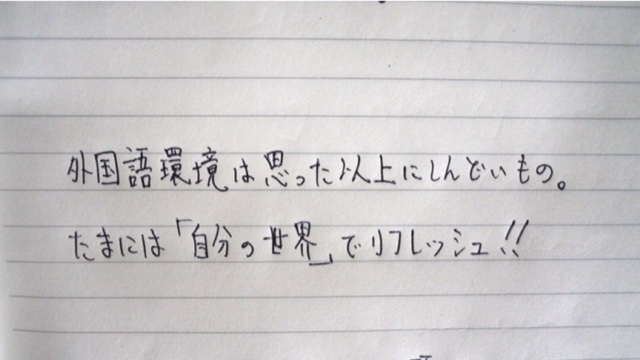 外国語環境は思った以上にしんどいもの。
たまには「自分の世界」でリフレッシュ!!